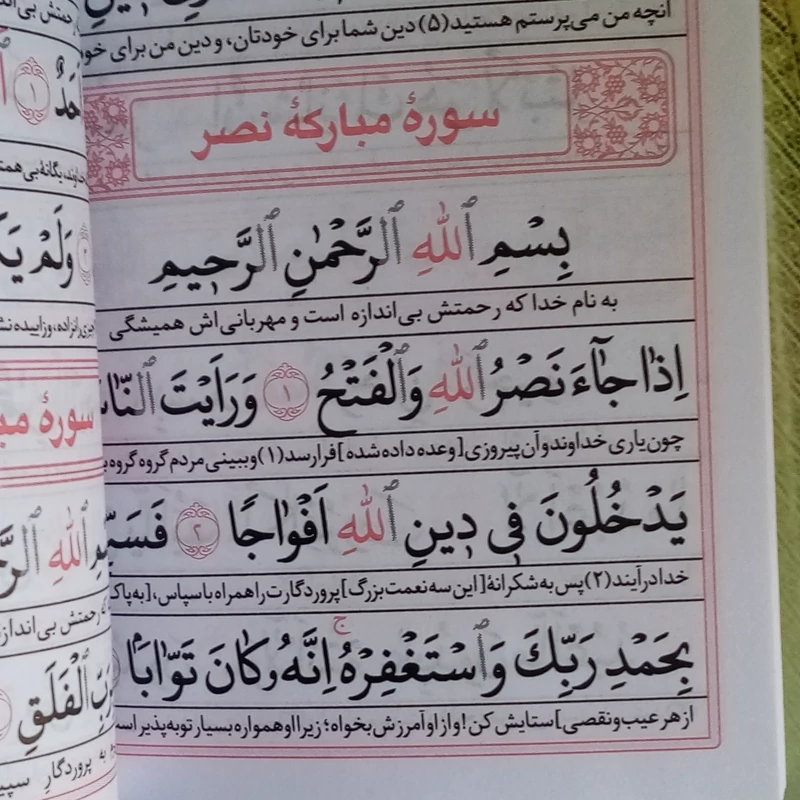 آنچه من می‌پرستم هستید(۵) دین شما برای خودتان، و دین من برای
سورهٔ مبارکهٔ نصر
بِسْمِ ٱللّٰهِ ٱلرَّحْمٰنِ ٱلرَّحِيمِ
به نام خدا که رحمتش بی‌اندازه است و مهربانی‌اش همیشگی
اِذٰا جٰٓاءَ نَصْرُ ٱللّٰهِ وَٱلْفَتْحُ ﴿١﴾ وَرَاَيْتَ
چون یاری خداوند و آن پیروزی[وعده داده شده]فرارسد(۱)و ببینی مردم گروه گروه
يَدْخُلُونَ فِى دِينِ ٱللّٰهِ اَفْوٰاجًا ﴿٢﴾
خدا درآیند(۲)پس به شکرانهٔ[این سه نعمت بزرگ]پروردگارت را همراه با سپاس،
بِحَمْدِ رَبِّكَ وَٱسْتَغْفِرْهُ ج اِنَّهُ كٰانَ تَوّٰابًا
از هر عیب و نقصی]ستایش کن! و از او آمرزش بخواه؛ زیرا او همواره بسیار توبه‌پذیر است
وَلَمْ
سورهٔ
ٱللّٰهِ
رحمتش بی‌انداز
ٱلْفَلَقِ
به پروردگارِ